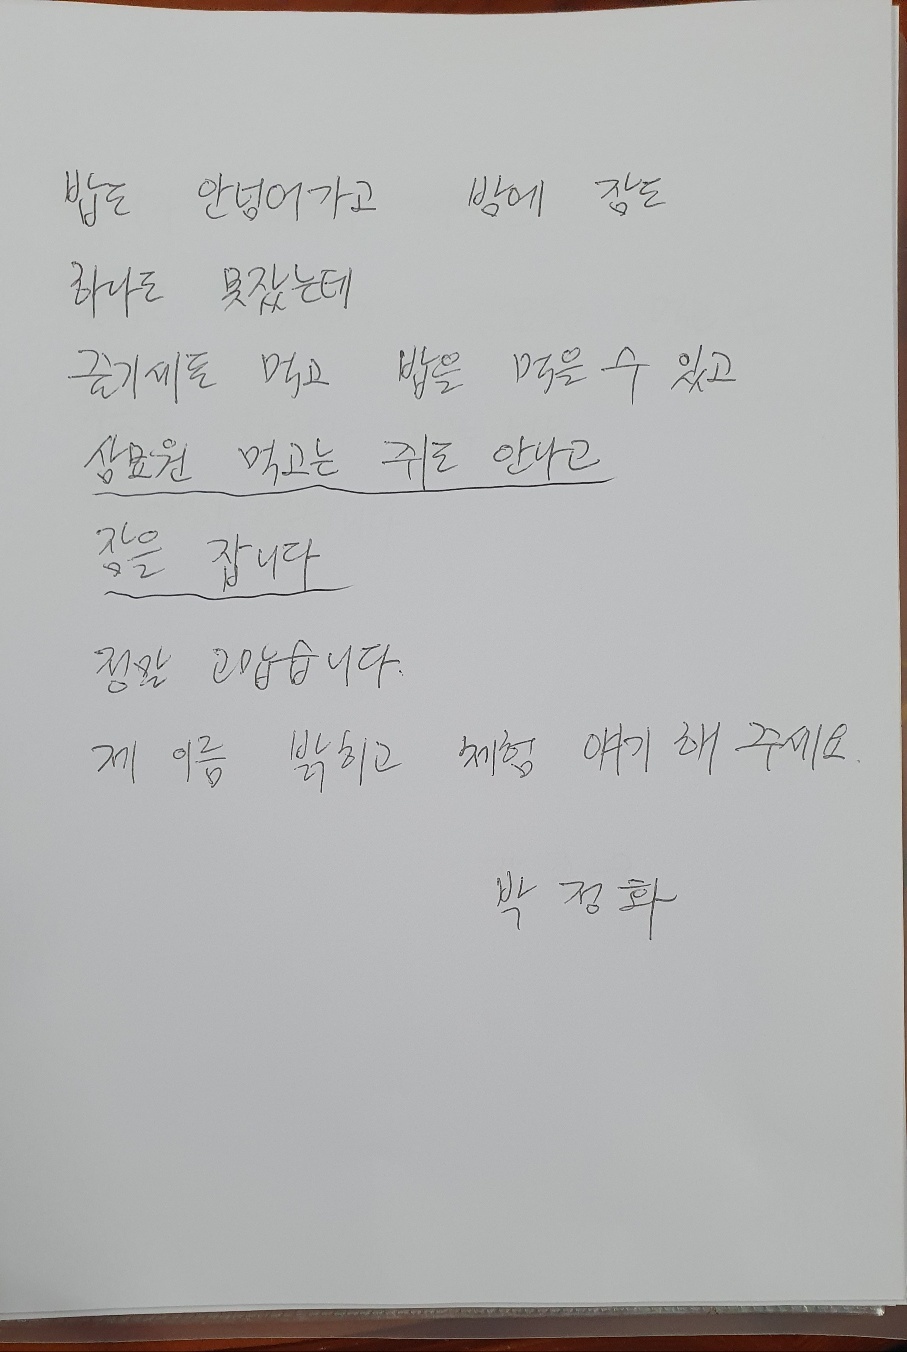 밥도 안넘어가고 밤에 잠도
하나도 못잤는데
줄기세토 먹고 밥을 먹을 수 있고
삼모원 먹고는 쥐도 안나고
잠을 잡니다
정말 고맙습니다.
제 이름 밝히고 체험 얘기 해 주세요.
박정화